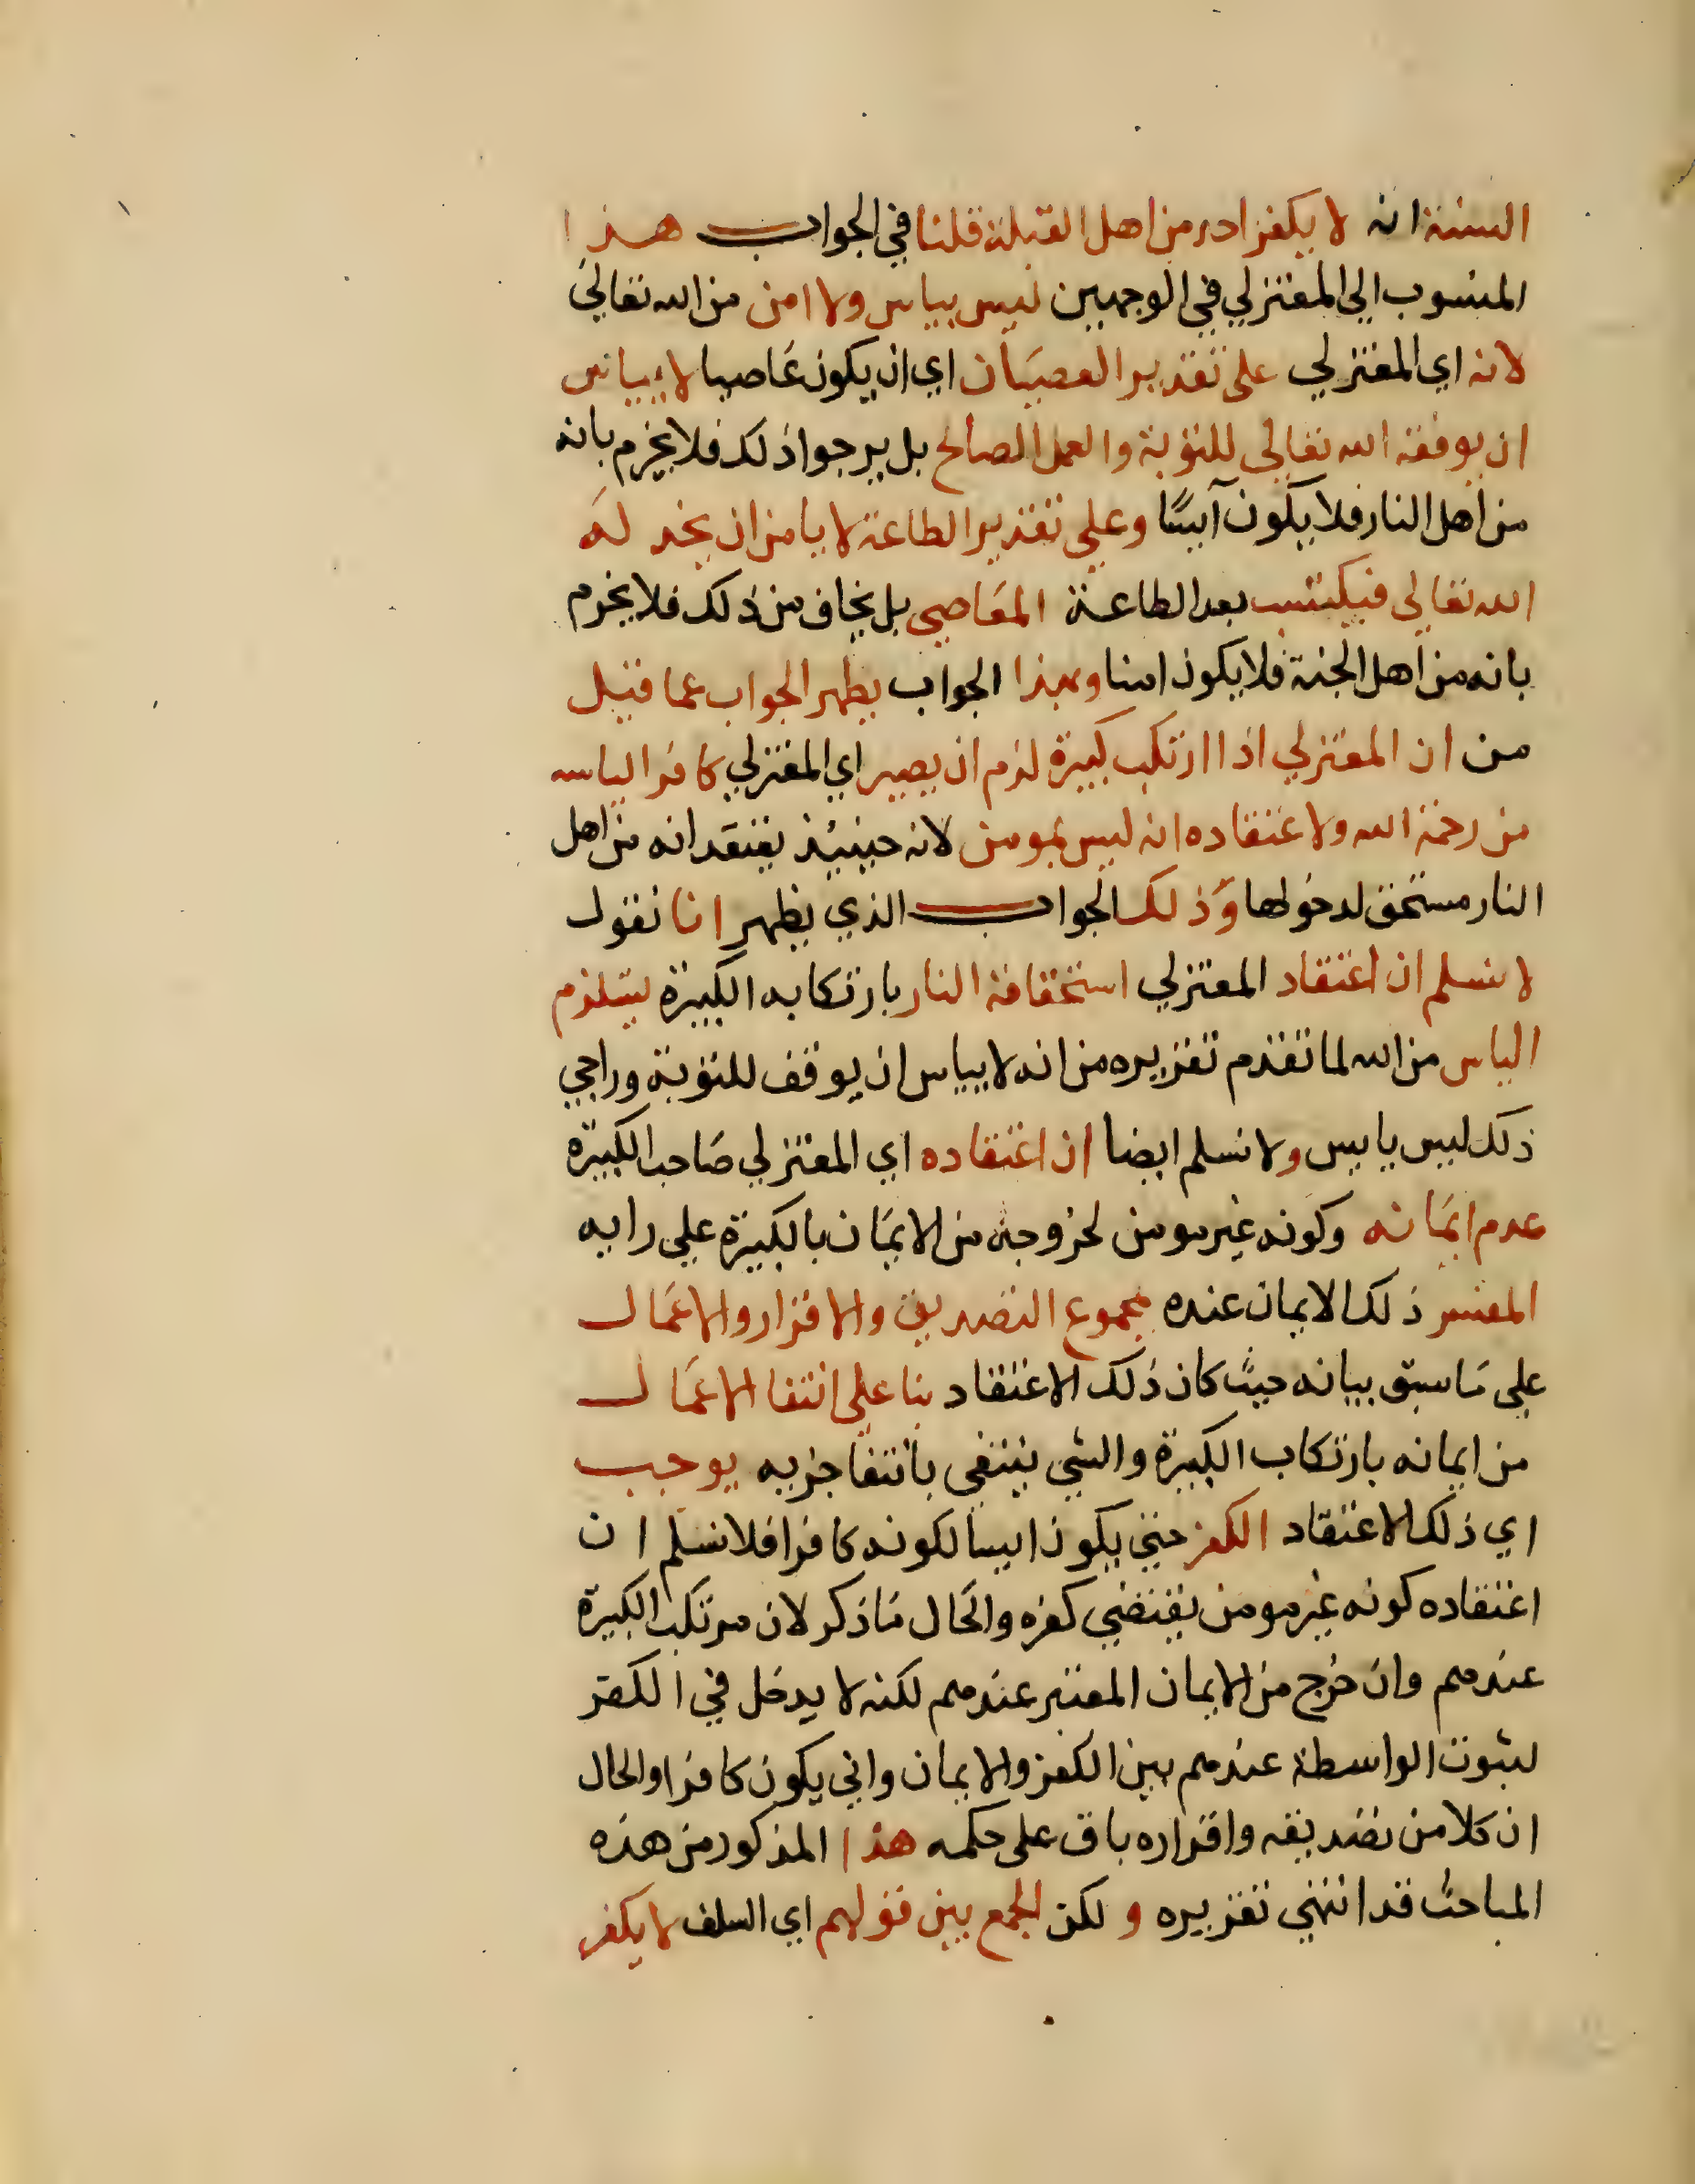 السنة انه لا يكفر احد من اهل القبلة قلنا في الجواب هذا
المنسوب الي المعتزلي في الوجهين ليس بياس ولا امن من الله تعالي
لانه اي المعتزلي علي تقدير العصيان اي ان يكون عاصيا لا يياس
ان يوفقه الله تعالي للتوبة والعمل الصالح بل يرجوا ذلك فلا يجزم بانه
من اهل النار فلا يكون آيسًا وعلي تقدير الطاعة لا يامن ان يخذله
الله تعالي فيكتسب بعد الطاعة المعاصي بل يخاف من ذلك فلا يجزم
بانه من اهل الجنة فلا يكون امنا وبهذا الجواب يظهر الجواب عما قيل
من ان المعتزلي اذا ارتكب كبيرة لزم ان يصير اي المعتزلي كافرا لياسه
من رحمة الله ولاعتقاده انه ليس بمومن لانه حينيذ يعتقد انه من اهل
النار مستحق لدخولها وذلك الجواب الذي يظهر انا نقول
لا نسلم ان اعتقاد المعتزلي استحقاقه النار بارتكابه الكبيرة يستلزم
الياس من الله لما تقدم تقريره من انه لا يياس ان يوفق للتوبة وراجي
ذلك ليس بايس ولا نسلم ايضا ان اعتقاده اي المعتزلي صاحب الكبيرة
عدم ايمانه وكونه غير مومن لخروجه من الايمان بالكبيرة علي رايه
المفسر ذلك الايمان عنده بمجموع التصديق والاقرار والاعمال
علي ما سبق بيانه حيث كان ذلك الاعتقاد بنا علي انتفا الاعمال
من ايمانه بارتكاب الكبيرة والشي ينتفي بانتفا جزيه يوجب
اي ذلك الاعتقاد الكفر حتي يكون ايسا لكونه كافرا فلا نسلم ان
اعتقاده كونه غير مومن يقتضي كفره والحال ما ذكر لان مرتكب الكبيرة
عندهم وان خرج من الايمان المعتبر عندهم لكنه لا يدخل في الكفر
لثبوت الواسطة عندهم بين الكفر والايمان واني يكون كافرا والحال
ان كلا من تصديقه واقراره باق علي حكمه هذا المذكور من هذه
المباحث قد انتهي تقريره و لكن الجمع بين قولهم اي السلف لا يكفر